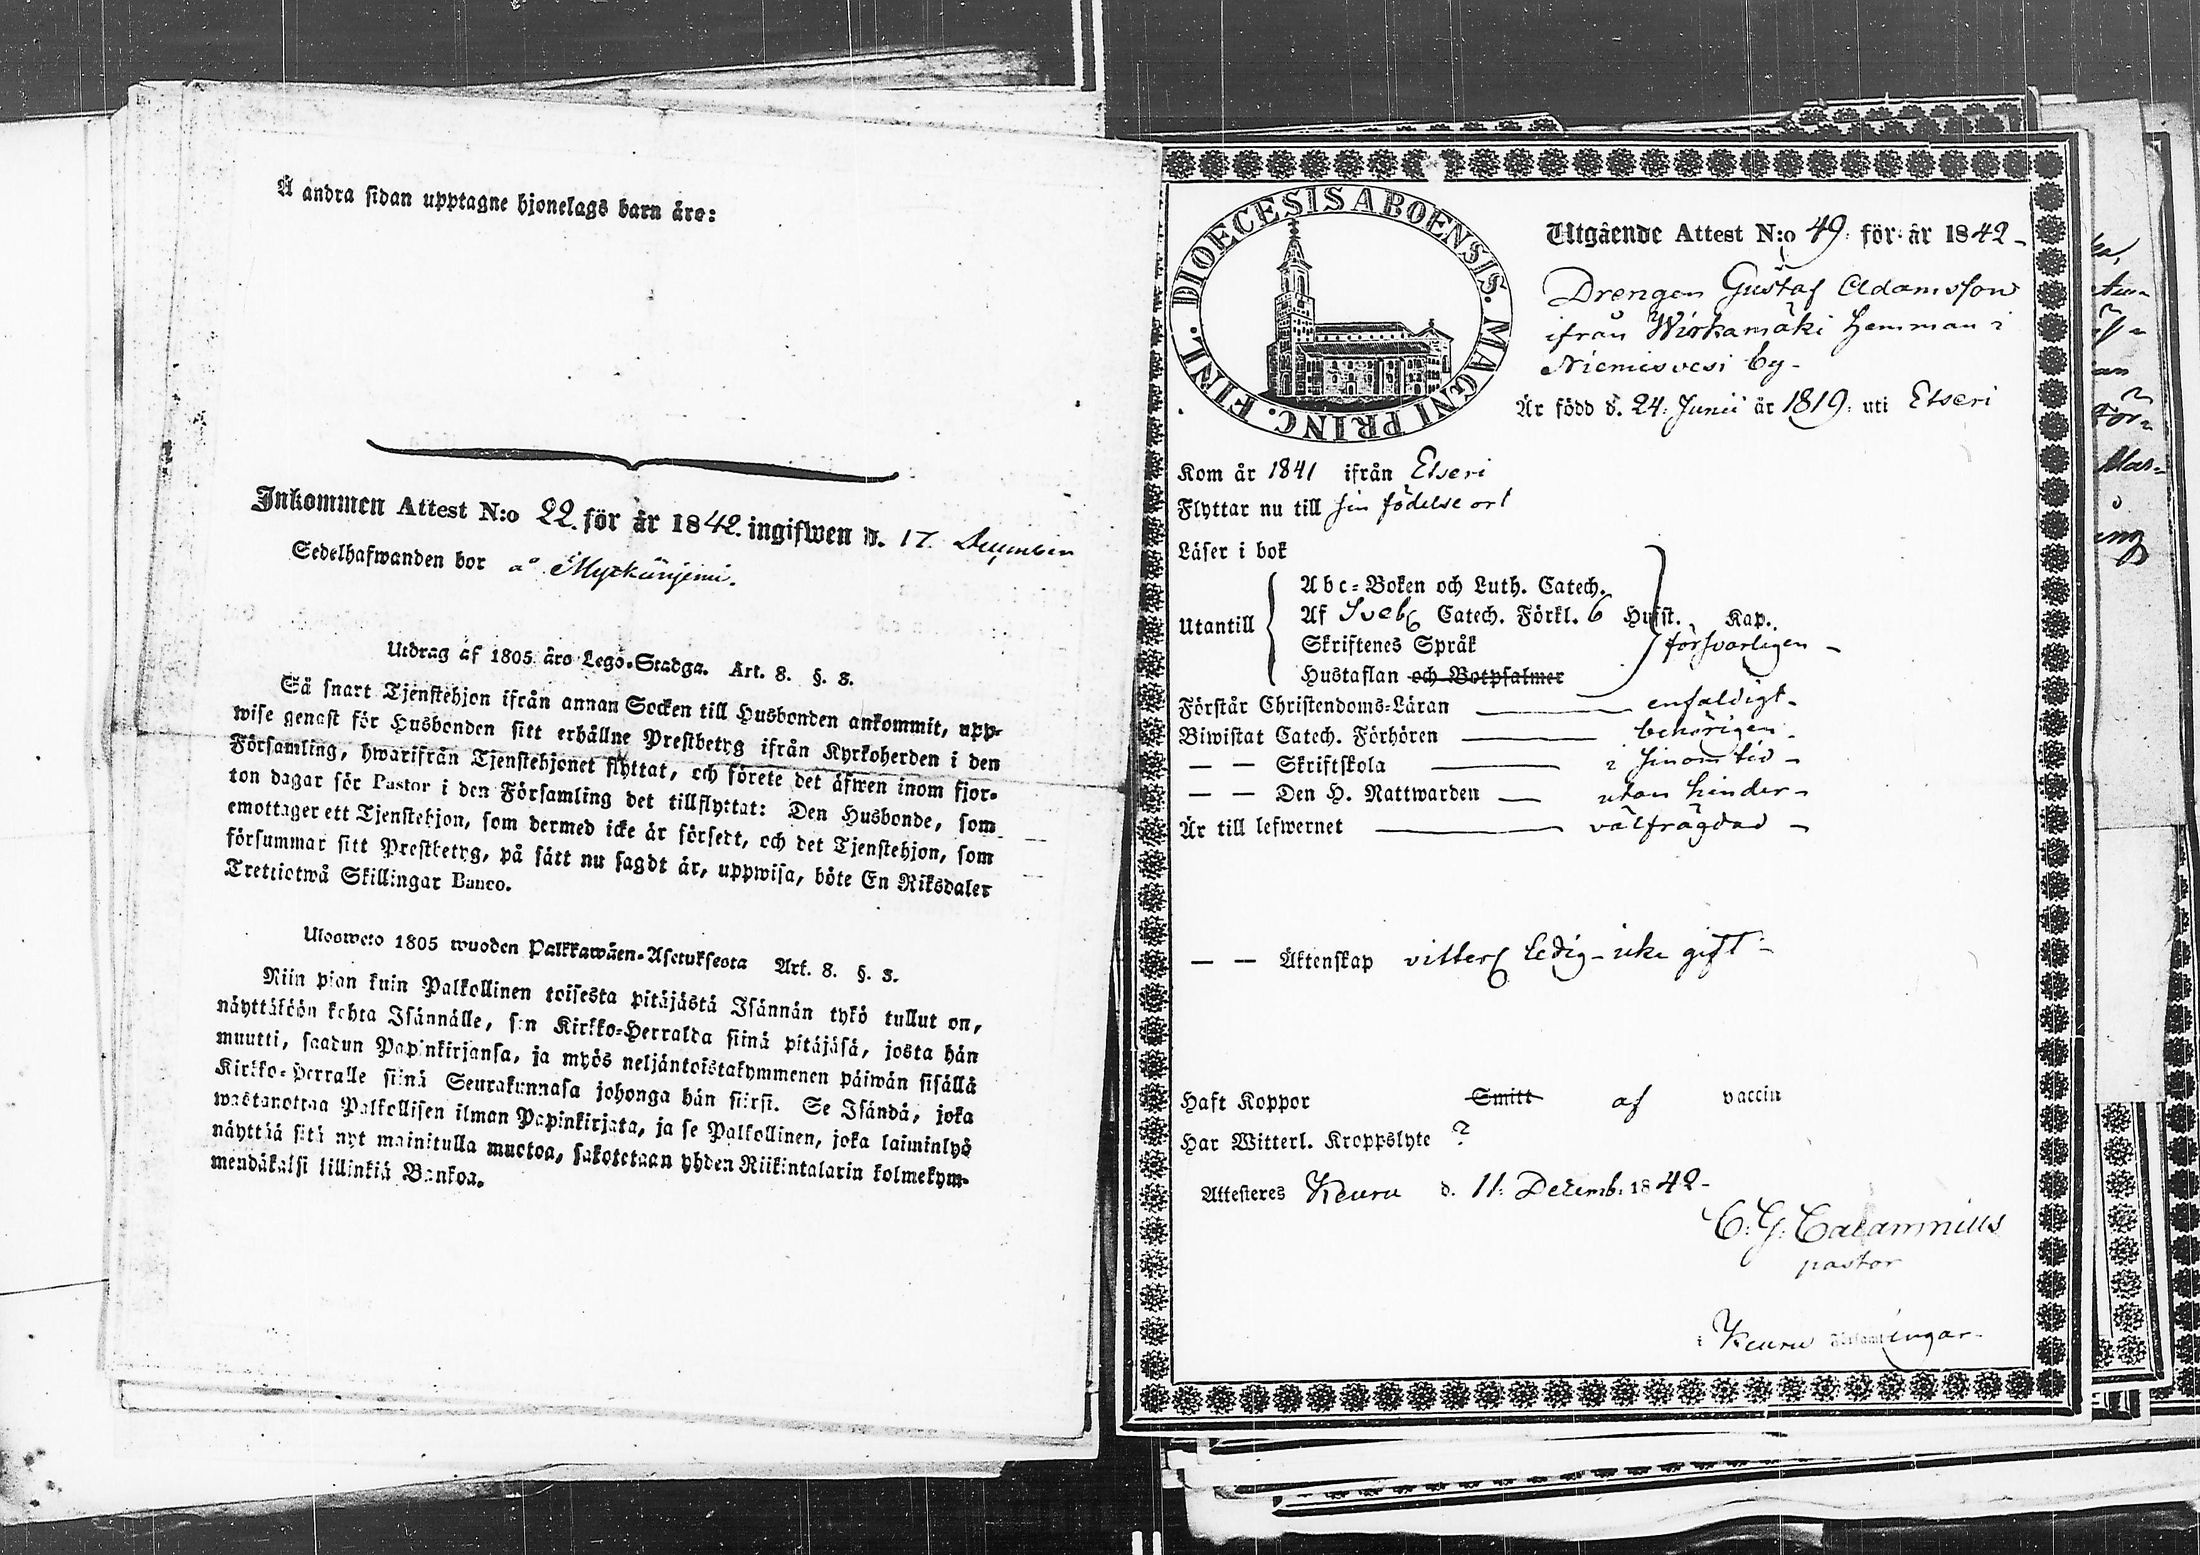 Å andra sidan upptagne hjonelags barn äro:
Inkommen Attest N:o 22. för år 1842. ingifwen d. 17. December
Sedelhafwanden bor å Myllärinjemi.
Utdrag af 1805 års Lego-Stadga. Art. 8. §. 3.
Så snart Tjenstehjon ifrån annan Socken till Husbonden ankommit, upp-
wise genast för Husbonden sitt erhållne Prestbetyg ifrån Kyrkoherden i den
Församling, hwarifrån Tjenstehjonet flyttat, och förete det äfwen inom fjor-
ton dagar för Pastor i den Församling det tillflyttat: Den Husbonde, som
emottager ett Tjenstehjon, som dermed icke är försedt, och det Tjenstehjon, som
försummar sitt Prestbetyg, på sätt nu sagdt är, uppwisa, böte En Riksdaler
Trettiotwå Skillingar Banco.
Ulosweto 1805 wuoden Palkkawäen-Asetuksesta Art. 8. §. 3.
Niin pian kuin Palkollinen toisesta pitäjästä Isännän tykö tullut on,
näyttäköön kohta Isännälle, sen Kirkko-Herralda siinä pitäjäsä, josta hän
muutti, saadun Papinkirjansa, ja myös neljäntoistakymmenen päiwän sisällä
Kirkko-Herralle siinä Seurakunnasa johonga hän siirsi. Se Isändä, joka
wastanottaa Palkollisen ilman Papinkirjata, ja se Palkollinen, joka laiminlyö
näyttää sitä nyt mainitulla muotoa, sakotetaan yhden Riikintalarin kolmekym-
mendäkaksi killinkiä Bankoa.
DIOECESIS ABOENSIS. MAGNI PRINC. FINL.
Utgående Attest N:o 49. för år 1842-
Drengen Gustaf Adamsson
ifrån Wirkamäki hemman i
Niemisvesi by-
Är född d. 24: Junii år 1819. uti Etseri
Kom år 1841 ifrån Etseri
Flyttar nu till sin födelse ort
Läser i bok
Utantill
Abc-Boken och Luth. Catech.
Af Sveb Catech. Förkl. 6 Hufst. Kap.
Skriftenes Språk försvarligen -
Hustaflan och Botpsalmer
Förstår Christendoms-Läran enfaldigt-
Biwistat Catech. Förhören behörigen-
— — Skriftskola i sinom tid -
— — Den H. Nattwarden utan hinder-
Är till lefwernet välfrägdad -
— — Äktenskap vitterl ledig- icke gift-
Haft Koppor Smitt af vaccin
Har Witterl. Kroppslyte ?
Attesteres Keuru d. 11. Decemb. 1842-
C. G. Calamnius
pastor
i Keuru Församlingar.